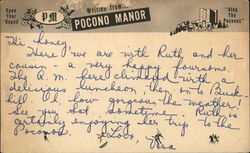 Open Year Round
PM
Written from...
POCONO MANOR
"Atop The Poconos"
Hi honey,
Here I we are with Ruth and her
cousin - a very happy foursome.
This A.M. here climaxed with
delicious luncheon then on to Buck-
hill. Oh, how gorgeous the weather.
See you Sat. sometime. Ruth is
certainly enjoying her trip to the
Poconos. Love,
Vera